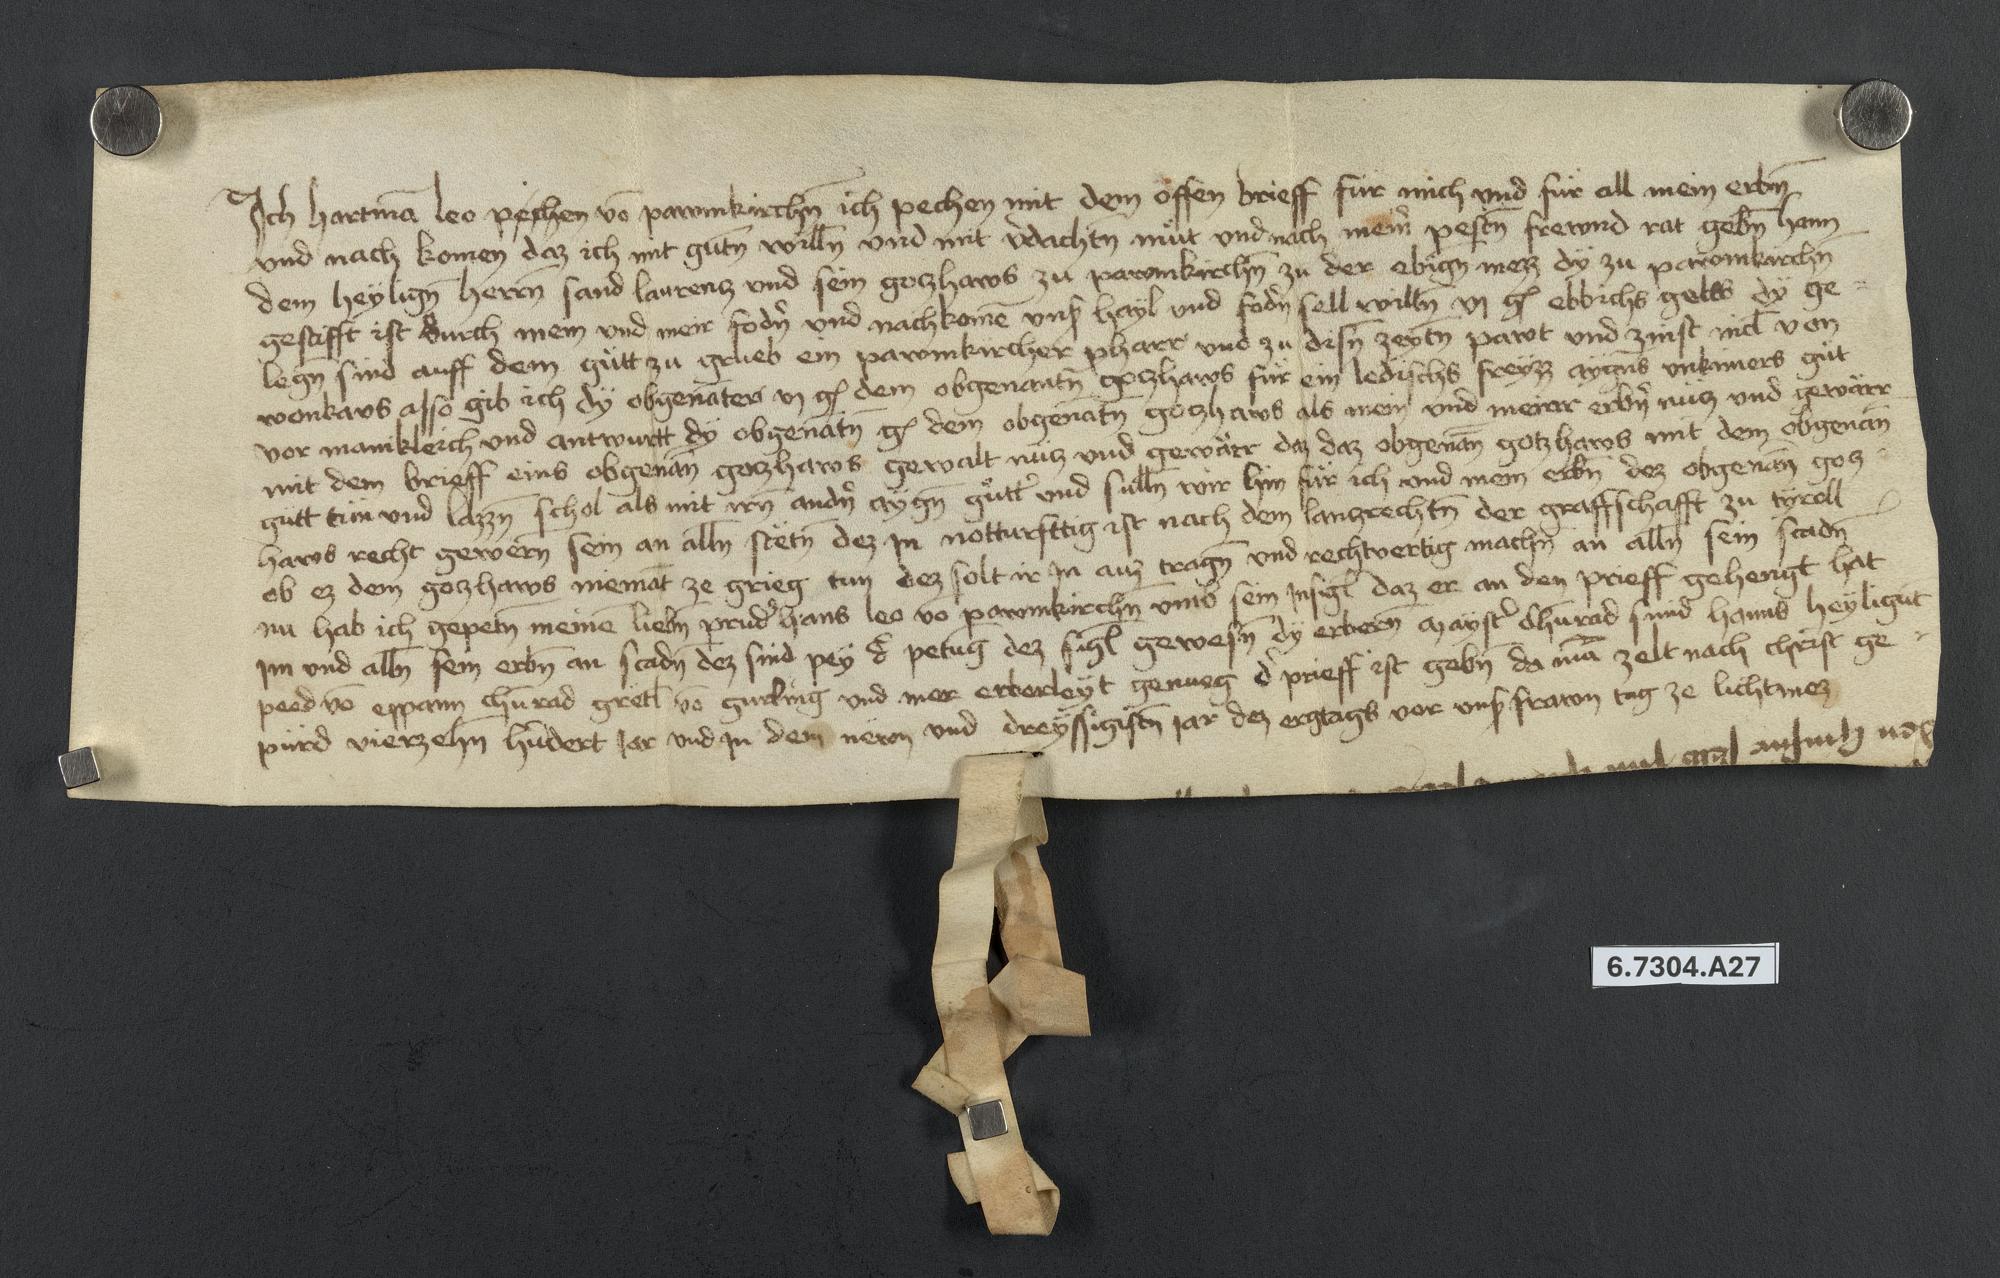 Ich hartmā leo pechen vō pawmkirchn̄ ich pechen mit dem offen brieff für mich vnd für all mein erbn̄
vnd nach komen daz ich mit gutn̄ willn̄ vnd mit vdachtn̄ müt vnd nach meinr̄ pestn̄ frewnd rat gebn̄ henn
dem heylign̄ herrn̄ sand laurentz vnd sein goczhaws zu pawmkirchn̄ zu der ebign̄ mezz dy zu pawmkirchn̄
gestifft ist durch mein vnd meir fodn̄ vnd nachkomē vnsr hayl vnd fodn̄ sell willn̄ vj gl ebbichs gelts dy ge-
legn̄ sind auff dem gütt zu grueb ein pawmkircher pharr vnd zu disn̄ zeytn̄ pawt vnd zinst nicl von
wenkavs also gib ich dy obgenāten vj gl dem obgenantn̄ goczhaws für ein ledischs freyzz aygens vnkümers güt
vor manikleich vnd antwurtt dy obgenātn̄ gl dem obgenātn̄ goczhaws als mein vnd meiner erbn̄ nücz vnd gewärr
mit dem brieff eins obgenan̄ goczhaws gewalt nücz vnd gewärr daz daz obgenan̄ gotzhaws mit dem obgenan̄
gütt tün vnd lazzn̄ schol als mit irn̄ andn̄ aygn̄ gütt' vnd sülln̄ wir hin für ich vnd mein erbn̄ dez obgenan̄ gocz-
haws recht gewern̄ sein an alln̄ stetn̄ dez In notturfttig ist nach dem lanczrechtn̄ der graffschafft zu tyroll
ob ez dem goczhaws niemāt ze grieg tun dez solt ir In auz tragn̄ vnd rechtvertig machn̄ an alln̄ sein scadn̄
nu hab ich gepetn̄ meinē liebn̄ prud' hans leo vo pawmkirchn̄ vmb sein Insigl daz er an den prieff gehengt hat
Im vnd alln̄ sein erbn̄ an scadn̄ dez sind pey d' petūg dez sigl gewesn̄ dy erbern̄ mayst' chūrad smid hanns heyligut
peed vō eppann chūrad gretl vō gurling vnd mer erberleyt genueg d' prieff ist gebn̄ da mā zelt nach christ ge-
pürd vierzehn̄ hūdert Jar vnd In dem newn vnd dreyssigistn̄ Jar dez ergtags vor vnsr frawn tag ze lichtmez
6.7304.A27